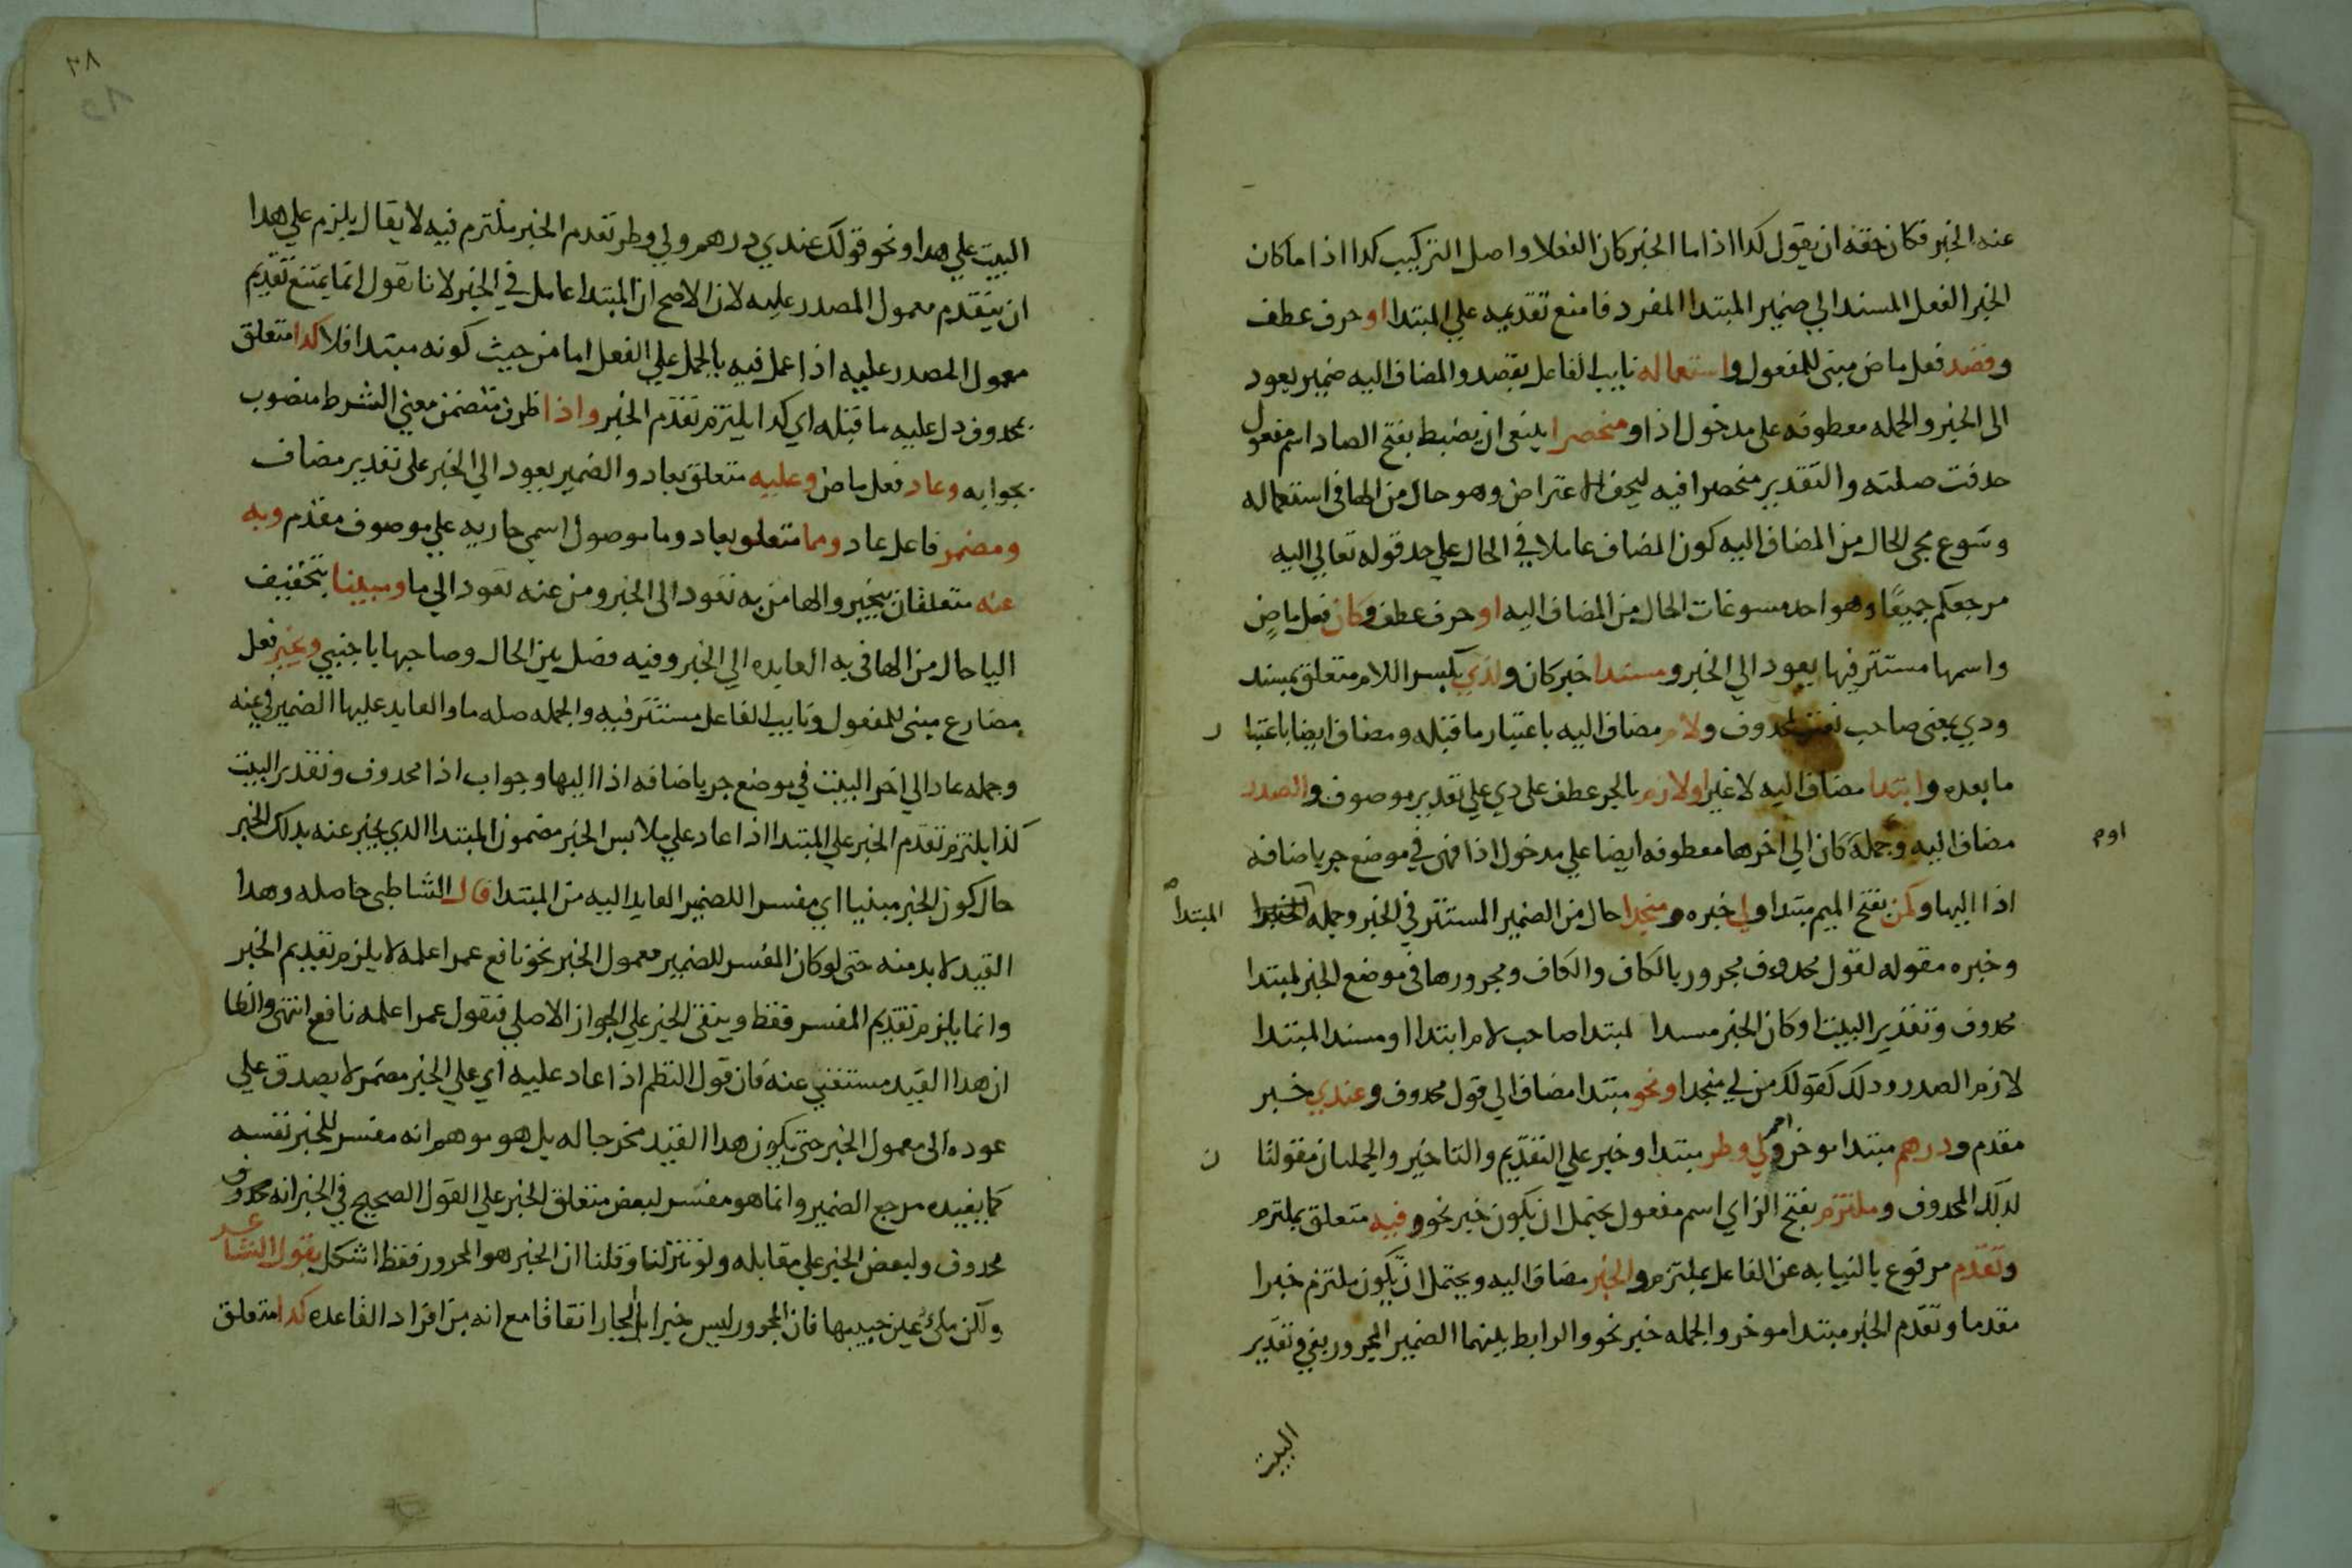 عنه الخبر فكان حقه ان يقول كدا اذا ما الخبر كان الفعلا واصل التركيب كدا اذا ما كان
الخبر الفعل المسند الي ضمير المبتدا المفرد فامنع تقديمه علي المبتدا او حرف عطف
وقصد فعل ماض مبنى للمفعول واستعماله نايب الفاعل بقصد والمضاف اليه ضمير يعود
الى الخبر والجمله معطوفه على مدخول اذا ومنحصرا ينبغى ان يضبط بفتح الصاد اسم مفعول
حدفت صلته والتقدير منحصرا فيه ليخف الاعتراض وهو حال من الها في استعماله
وسوع مجى الحال من المضاف اليه كون المضاف عاملا في الحال علي حد قوله تعالي اليه
مرجعكم جميعا وهو احد مسوغات الحال من المضاف اليه او حرف عطف وكان فعل ماضٍ
واسمها مستتر فيها يعود الي الخبر ومسندا خبر كان ولذي بكسر اللام متعلق بمسند
ودي بمعنى صاحب نعت لمحدوف ولام مضاف اليه باعتبار ما قبله ومضاف ايضا باعتبا ر
ما بعده وابتدا مضاف اليه لا غير او لازم بالجر عطف على دي علي تقدير موصوف والصدر
مضاف اليه وجمله كان الي اخرها معطوفه ايضا علي مدخول اذا فهى في موضع جر باضافه
اوم
اذا اليها وكمن بفتح الميم مبتدا ولي خبره ومنجدا حال من الضمير المستتر في الخبر وجمله المبتدا
وخبره مقوله لقول محدوف مجرور بالكاف والكاف ومجرورها في موضع الخبر لمبتدا
محدوف وتقدير البيت او كان الخبر مسدا لمبتدا صاحب لام ابتدا او مسند المبتدا
لازم الصدر ودلك كقولك من لي منجدا ونحو مبتدا مضاف الي قول محدوف وعندي خبر
مقدم ودرهم مبتدا موخر ولي وطر مبتدا وخبر علي التقديم والتاخير والجملتان مقولتا ن
لدلك المحدوف وملتزم بفتح الزاي اسم مفعول يحتمل ان يكون خبر نحو وفيه متعلق بملتزم
وتقدم مرفوع بالنيابه عن الفاعل بملتزم والخبر مضاف اليه ويحتمل ان يكون ملتزم خبرا
مقدما وتقدم الخبر مبتدا موخر والجمله خبر نحو والرابط بينهما الضمير المجرور بفي وتقدير
البيت
٢٨
البيت علي هدا ونحو قولك عندي درهم ولي وطر تقدم الخبر ملتزم فيه لا يقال يلزم علي هدا
ان يتقدم معمول المصدر عليه لان الاصح ان المبتدا عامل في الخبر لانا نقول انما يمتنع تقديم
معمول المصدر عليه اذا عمل فيه بالحمل علي الفعل اما من حيث كونه مبتدا فلا كدا متعلق
بمحدوف دل عليه ما قبله اي كدا يلتزم تقدم الخبر واذا ظرف متضمن معني الشرط منصوب
بجوابه وعاد فعل ماض وعليه متعلق بعاد والضمير يعود الي الخبر على تقدير مضاف
ومضمر فاعل عاد ومما متعلق بعاد وما موصول اسمي جاريه علي موصوف مقدم وبه
عنه متعلقان بيخبر والها من به تعود الى الخبر ومن عنه تعود الي ما ومبينا بتخفيف
اليا حال من الها في به العايده الي الخبر وفيه فصل بين الحال وصاحبها باجنبي ويخبر فعل
مضارع مبنى للمفعول ونايب الفاعل مستتر فيه والجمله صله ما والعايد عليها الضمير في عنه
وجمله عاد الي اخر البيت في موضع جر باضافه اذا اليها وجواب اذا محدوف وتقدير البيت
كذا يلتزم تقدم الخبر علي المبتدا اذا عاد علي ملابس الخبر مضمون المبتدا الدي يخبر عنه بدلك الخبر
حال كون الخبر مبنيا اي مفسرا للضمير العايد اليه من المبتدا قال الشاطبى حاصله وهدا
القيد لا بد منه حتى لو كان المفسر للضمير معمول الخبر نحو نافع عمرا علمه لا يلزم تقديم الخبر
وانما يلزم تقديم المفسر فقط ويبقى الخبر علي الجواز الاصلي فتقول عمرا علمه نافع انتهى والظا
ان هدا القيد مستغني عنه فان قول النظم اذا عاد عليه اي علي الخبر مضمر لا يصدق علي
عوده الى معمول الخبر حتى يكون هدا القيد مخرجا له بل هو موهم انه مفسر للخبر نفسه
كما يفيده مرجع الضمير وانما هو مفسر لبعض متعلق الخبر علي القول الصحيح في الخبر انه محدوف
محدوف ولبعض الخبر علي مقابله ولو تنزلنا وقلنا ان الخبر هو المجرور فقط اشكل بقول الشاعر
ولكن ملئ عين حبيبها فان المجرور ليس خبرا بل الجار اتفاقا مع انه من افراد القاعده كدا متعلق